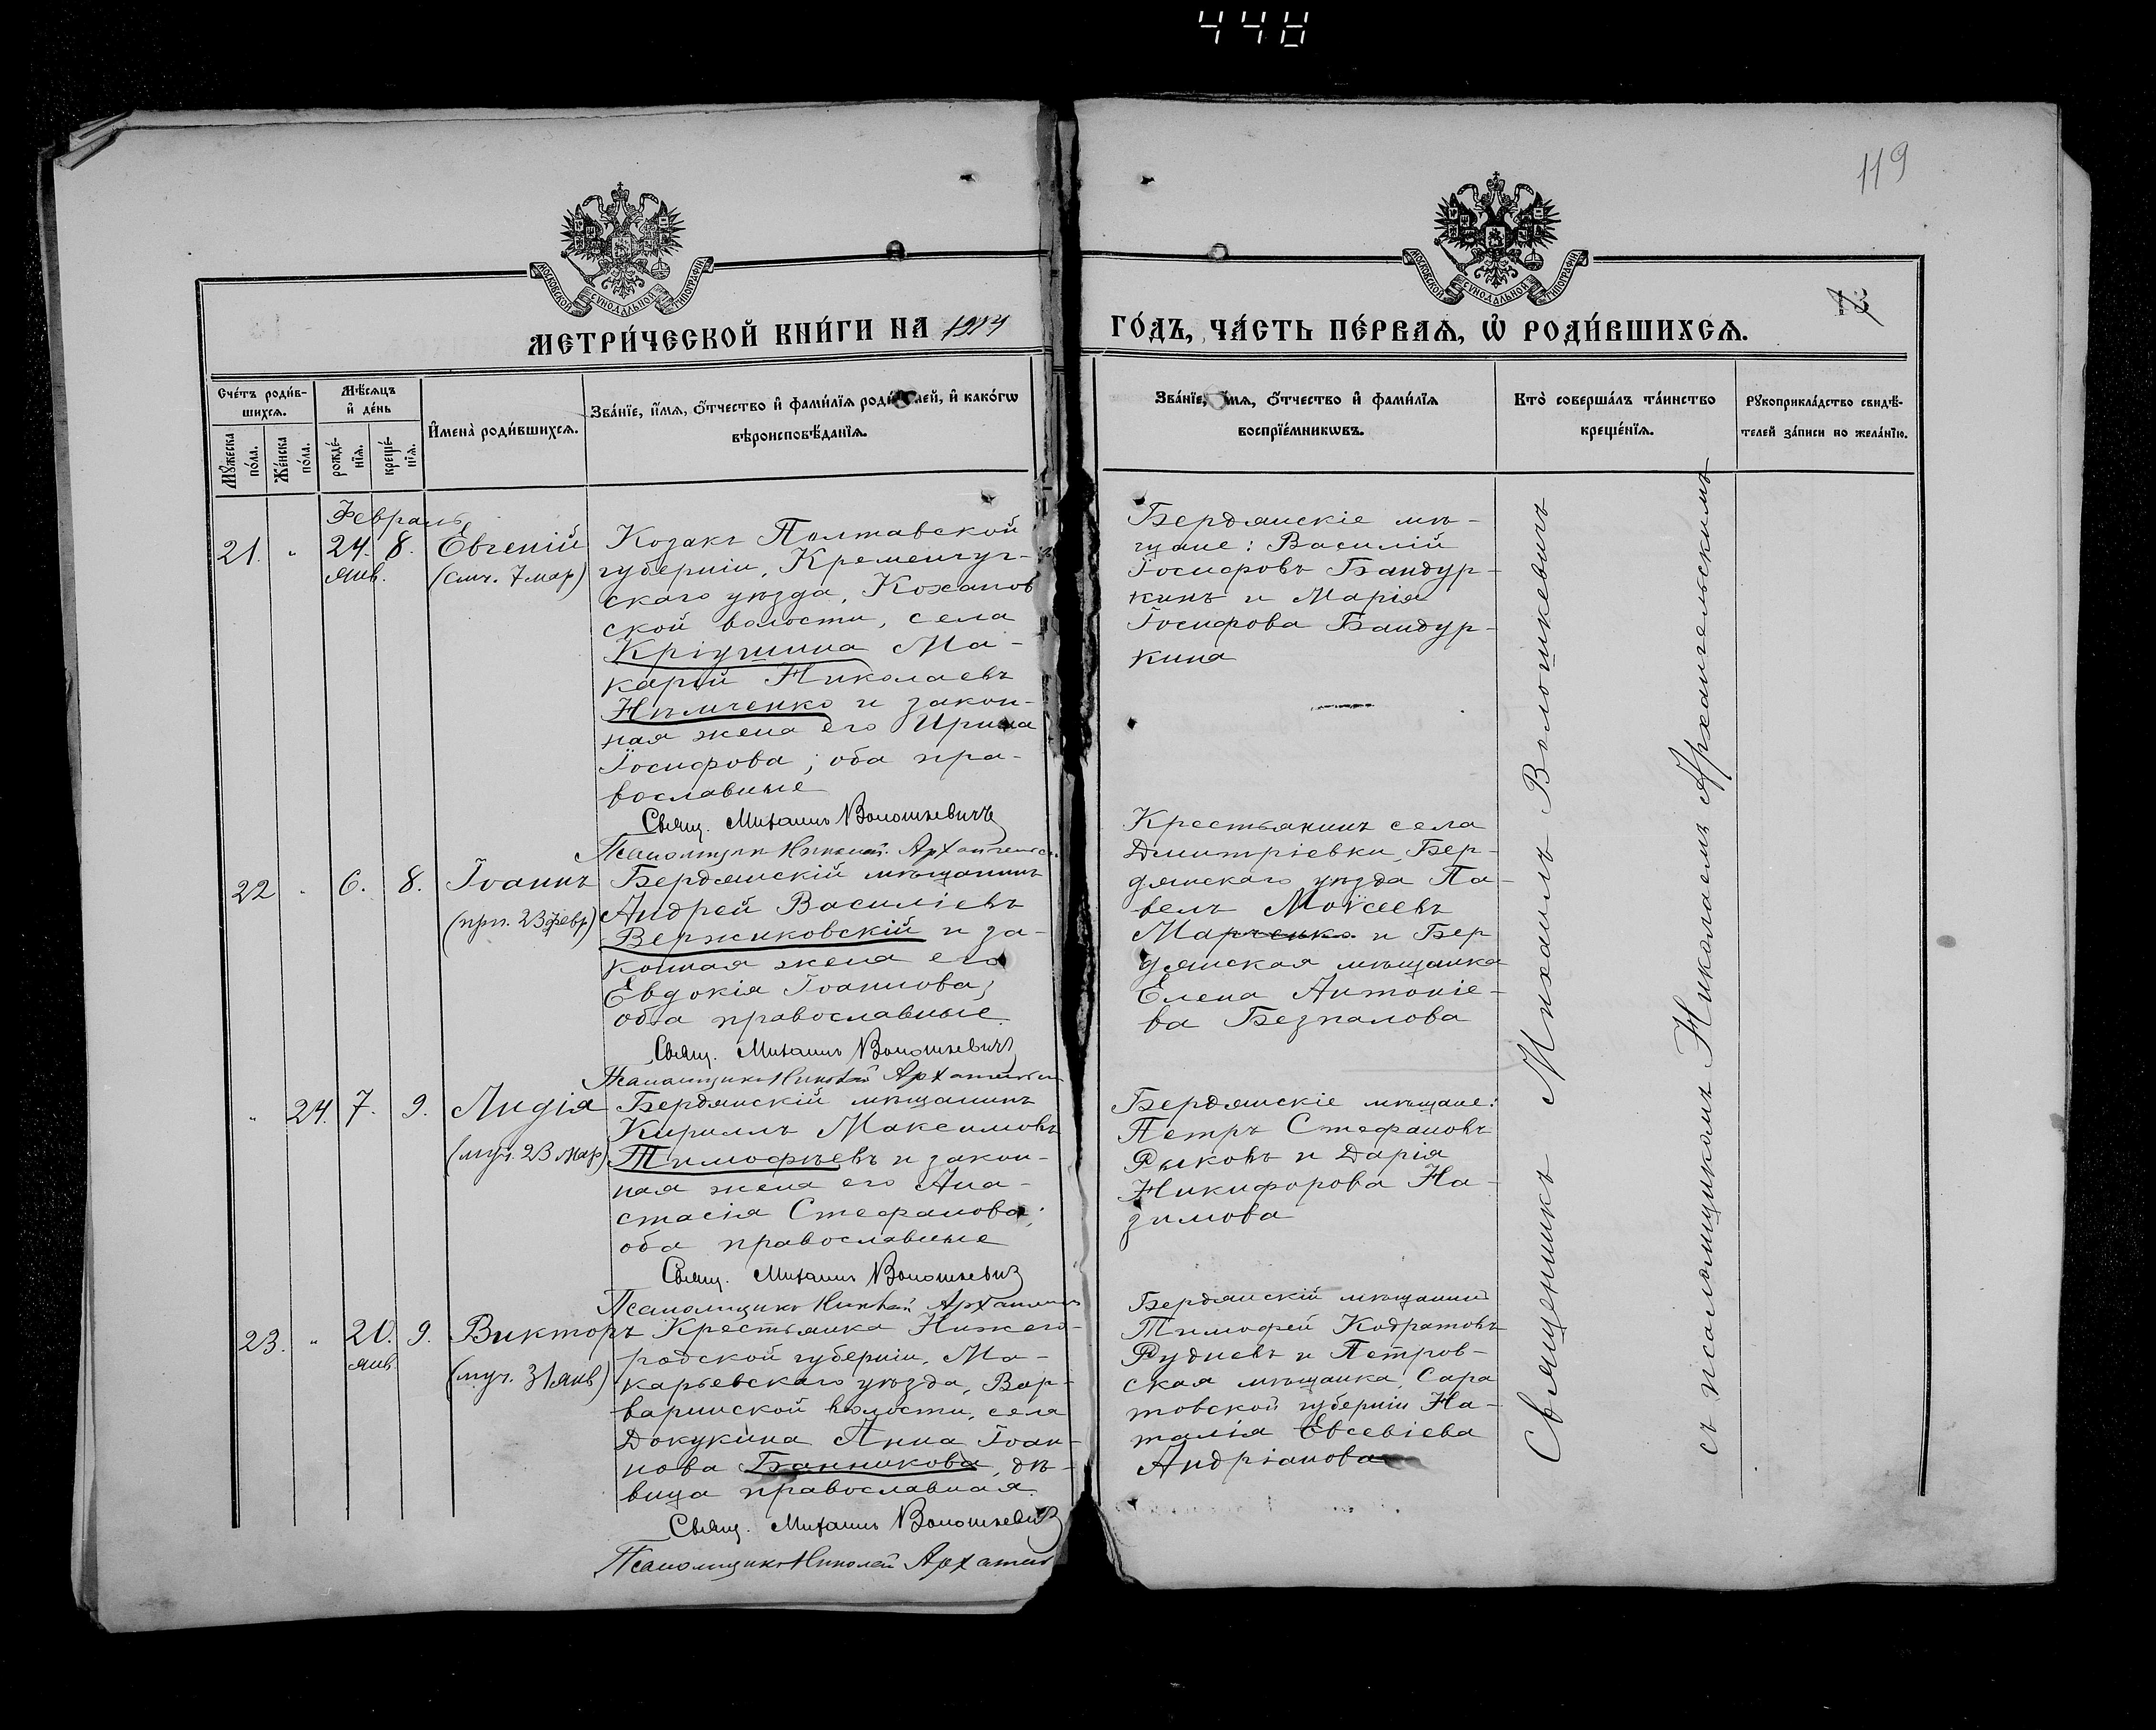 448
119
МОСКОВСКОЙ СУНОДАЛЬНОЙ ТИПОГРАФІИ
МОСКОВСКОЙ СУНОДАЛЬНОЙ ТИПОГРАФІИ
МЕТРИ́ЧЕСКОЙ КНИ́ГИ НА 1914
ГО́ДЪ, ЧА́СТЬ ПЕ́РВАѦ, Ѡ҆ РОДИ́ВШИХСѦ.
Сче́тъ роди́в-
шихсѧ.
Мѣ́сѧцъ
и҆ де́нь
И҆мена̀ роди́вшихсѧ.
Зва́нїе, и҆́мѧ, ѻ҆́тчество и҆ фамі́лїѧ роди́телей, и҆ како́гѡ
вѣроисповѣ́данїѧ.
Мꙋ́жеска
по́ла.
Же́нска
по́ла.
рожде́-
нїѧ.
креще́-
нїѧ.
Зва́нїе, и҆́мѧ, ѻ҆́тчество и҆ фами́лїѧ
воспрїе́мникѡвъ.
Кто̀ соверша́лъ та́инство
креще́нїѧ.
Рꙋкоприкла́дство свидѣ́-
телей за́писи по жела́нїю.
Февраль
21. „ 24. 8. Евгеній
янв. (смч. 7 мар)
Козакъ Полтавской
губерніи, Кременчуг-
скаго уѣзда, Кохнов
ской волости, села
Кріушина Ма-
карій Николаевъ
Нѣмченко и закон-
ная жена его Ирина
Іосифова; оба пра-
вославные
Свящ. Михаилъ Волошкевичъ
Псаломщикъ Николай Архангельс
Бердянскіе мѣ-
щане: Василій
Іосифовъ Бандур-
кинъ и Марія
Іосифова Бандур-
кина
22 „ 6. 8. Іоаннъ
(прп. 23 февр)
Бердянскій мѣщанинъ
Андрей Василіевъ
Вержиковскій и за-
конная жена его
Евдокія Іоаннова;
оба православные.
Свящ. Михаилъ Волошкевичъ
Псаломщикъ Николай Архангельс
Крестьянинъ села
Дмитріевки, Бер-
дянскаго уѣзда Па-
велъ Моѵсеевъ
Марченко и Бер
дянская мѣщанка
Елена Антоніе-
ва Безпалова
„ 24. 7. 9. Лидія
(муч. 23 мар)
Бердянскій мѣщанинъ
Кириллъ Максимовъ
Тимофѣевъ и закон-
ная жена его Ана-
стасія Стефанова;
оба православные
Свящ. Михаилъ Волошкевичъ
Псаломщикъ Николай Архангельс
Бердянскіе мѣщане:
Петръ Стефановъ
Рыковъ и Дарія
Никифорова На-
зимова
23. „ 20. 9. Викторъ
янв. (муч. 31 янв)
Крестьянка Нижего-
родской губерніи, Ма-
карьевскаго уѣзда, Вар-
варинской волости, села
Докукина Анна Іоан-
нова Банникова, дѣ-
вица православная.
Свящ. Михаилъ Волошкевичъ
Псаломщикъ Николай Архангел
Бердянскій мѣщанинъ
Тимофей Кодратовъ
Рудневъ и Петров-
ская мѣщанка, Сара
товской губерніи На-
талія Евсевіева
Андріанова
Священникъ Михаилъ Волошкевичъ
съ псаломщикомъ Николаемъ Архангельскимъ